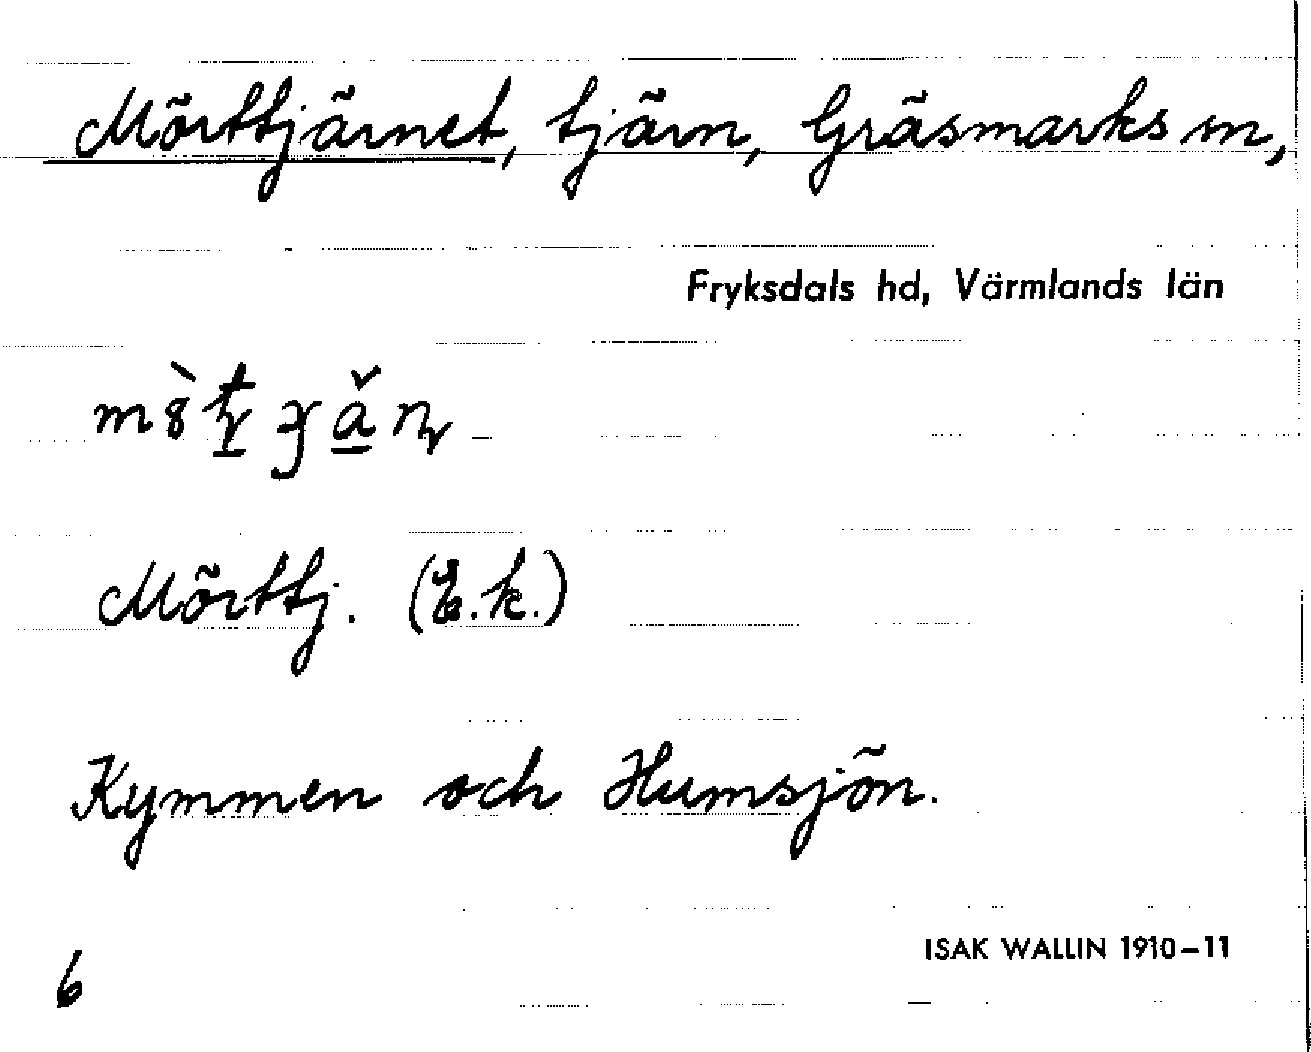 Mörttjärnet, tjärn, Gräsmarks sn,
Fryksdals hd, Värmlands län
Mörttj. (t.k.)
Kymmen och Humsjön.
ISAK WALLIN 1910–11
6